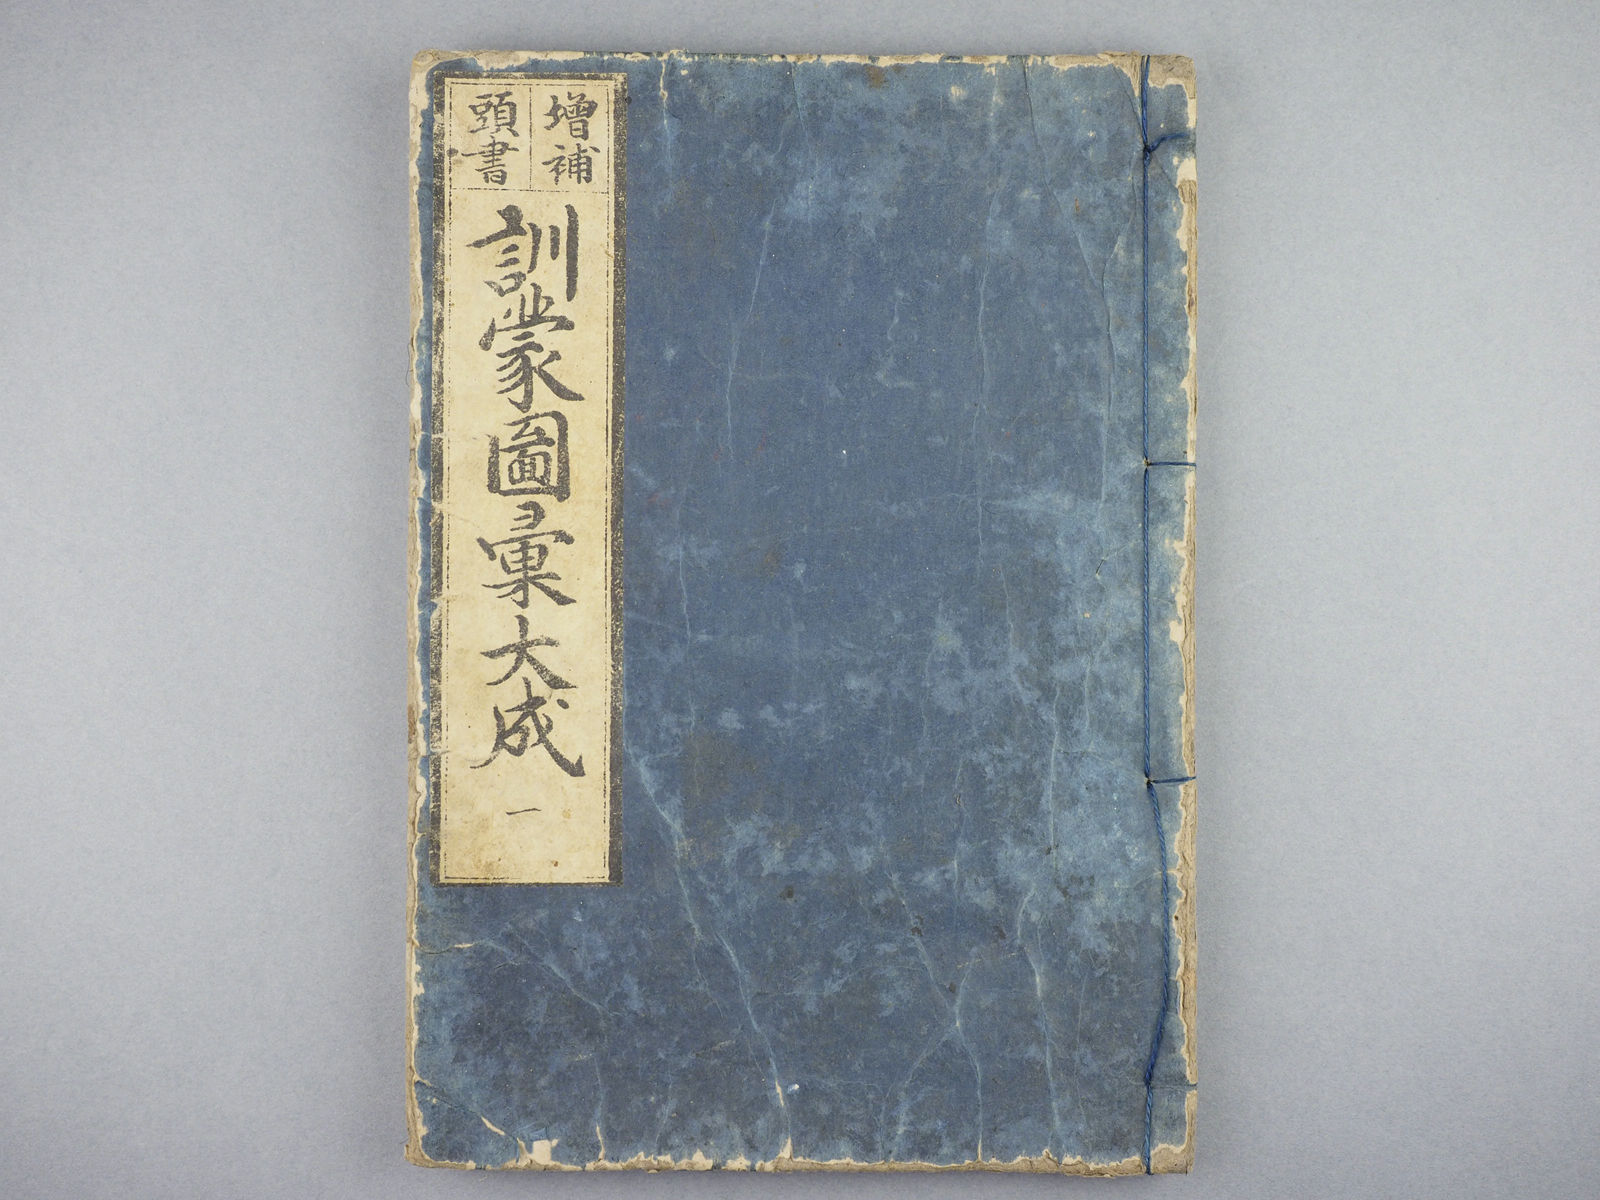 増補
頭書
訓蒙圖彙大成
一